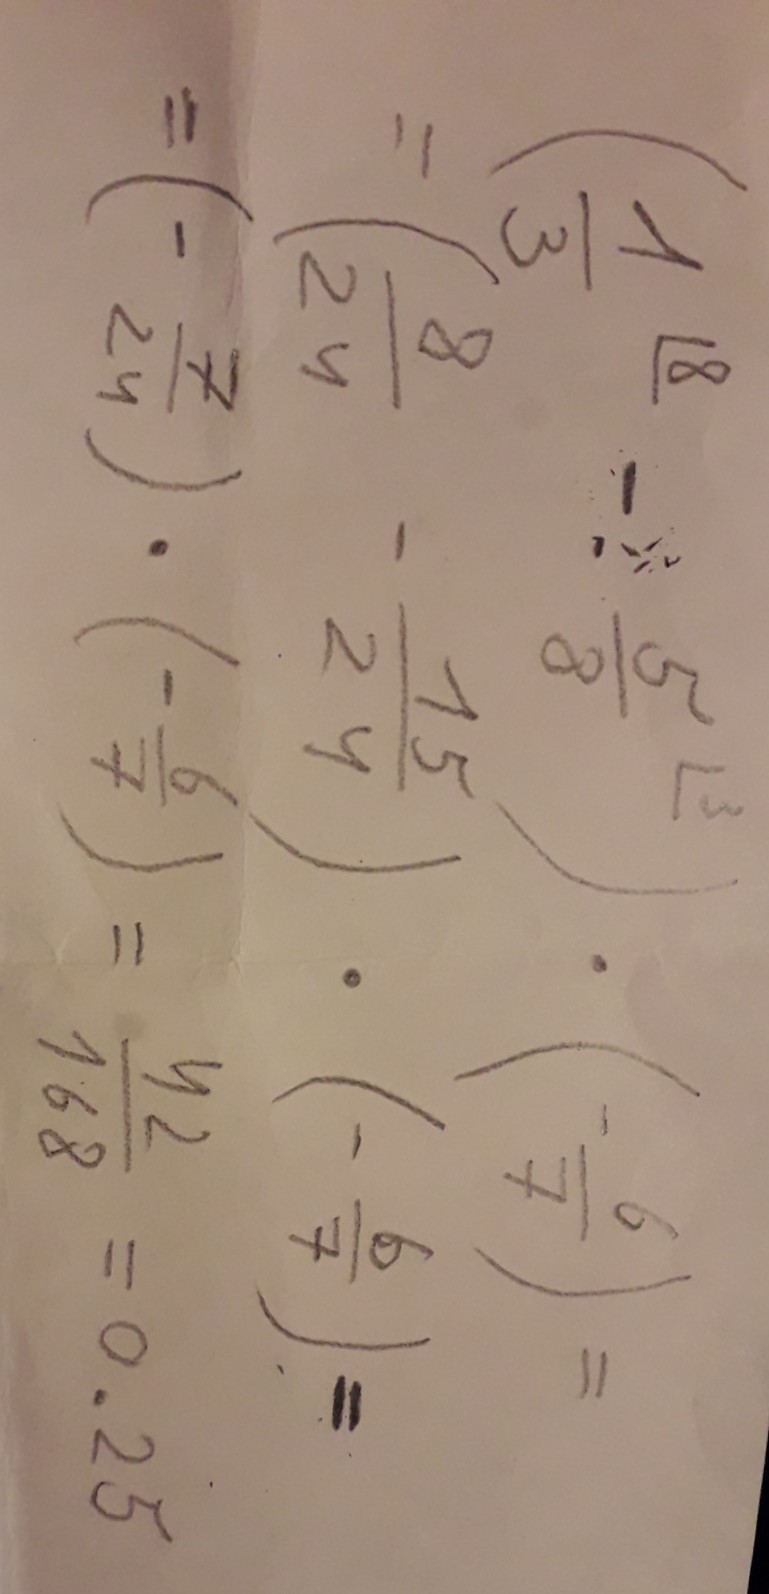 (1/3 ⌊8 - 5/8 ⌊3) · (-6/7) =
= (8/24 - 15/24) · (-6/7) =
= (-7/24) · (-6/7) = 42/168 = 0.25